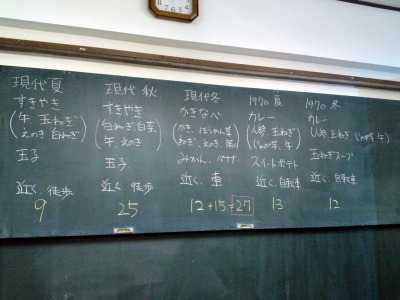 現代夏
すきやき
(牛 玉ねぎ
えのき 白ねぎ)
玉子
近く、徒歩
9
現代 秋
すきやき
(白ねぎ 白菜
牛、えのき)
玉子
近く 徒歩
25
現代冬
かきなべ
(かき、ほうれん草
ねぎ、えのき、
みかん、バナナ
近く、車
12+15=27
1970 夏
カレー
(人参 玉ねぎ
じゃが芋、牛)
スイートポテト
近く、自転車
13
1970 冬
カレー
(人参 玉ねぎ じゃが芋 牛)
玉ねぎスープ
近く、自転車
12